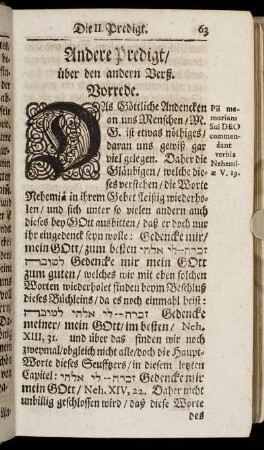 Die II. Predigt. 63
Andere Predigt/
über den andern Verß.
Vorrede.
DAs Göttliche Andencken
an uns Menschen/M.
G. ist etwas nöthiges/
daran uns gewiß gar
viel gelegen. Daher die
Gläubigen/ welche die-
ses verstehen/ die Worte
Nehemiä in ihrem Gebet fleißig wiederho-
len/ und sich unter so vielen andern auch
dieses bey GOtt ausbitten/ daß er doch nur
ihr eingedenck seyn wolle: Gedencke mir/
mein GOtt/ zum besten זכרה--לי אלהי
לטובה Gedencke mir mein GOtt
zum guten/ welches wir mit eben solchen
Worten wiederholet finden beym Beschluß
dieses Büchleins/ da es noch einmahl heist:
זכרה--לי אלהי לטובה Gedencke
meiner/ mein GOtt/ im besten/ Neh.
XIII, 31. und über das finden wir noch
zweymal/obgleich nicht alle/doch die Haupt-
Worte dieses Seufftzers/ in diesem letzten
Capitel: זכרה--לי אלהי Gedencke mir
mein GOtt/ Neh. XIV, 22. Daher nicht
unbillig geschlossen wird/ daß diese Worte
des
Piâ me-
moriam
Sui DEO
commen-
dant
verbis
Nehemi-
æ V. 19.